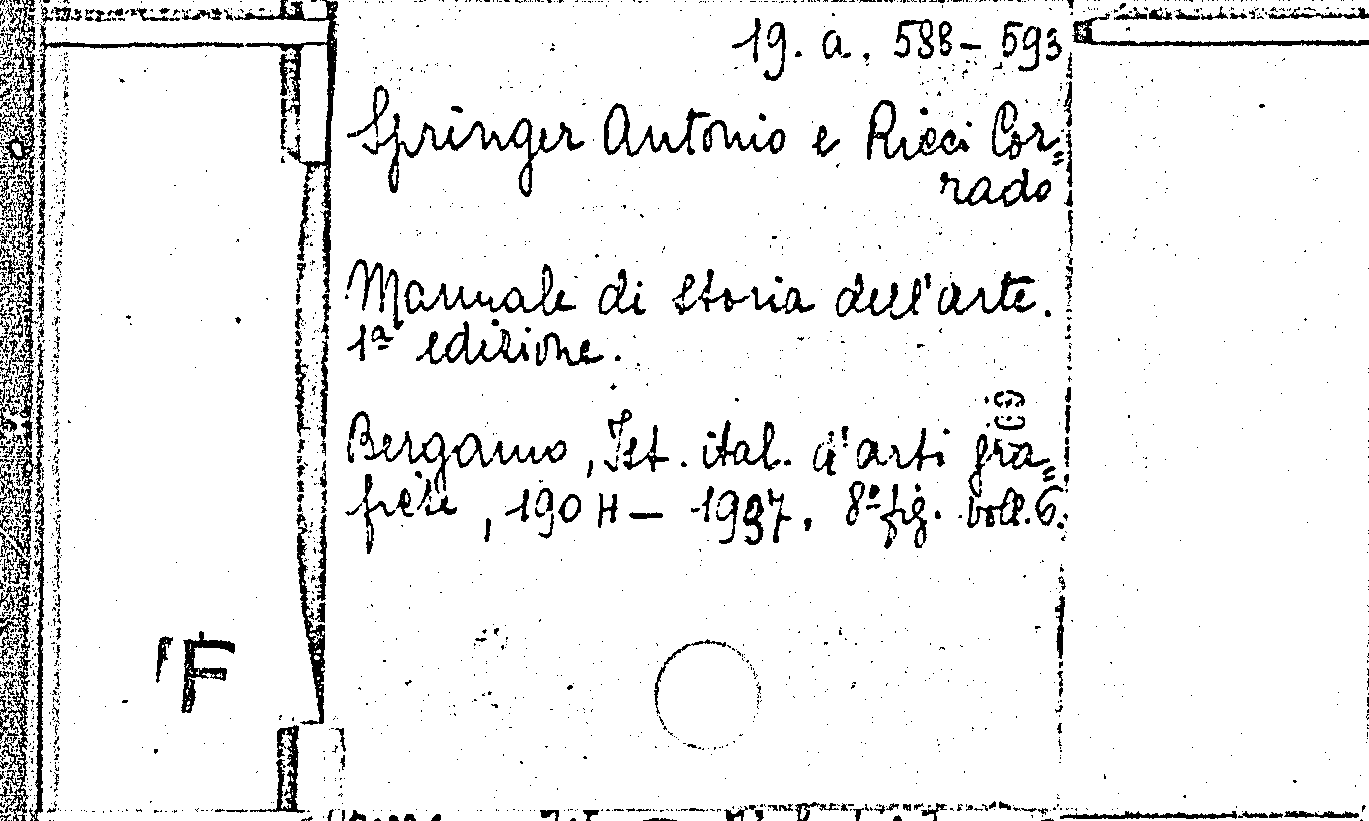 19. a. 588 - 593
Springer Antonio e Ricci Cor=
rado
Manuale di Storia dell'arte.
1ª edizione.
Bergamo, Ist. ital. d'arti gra=
fiche, 1904 - 1937. 8° fig. voll. 6.
F